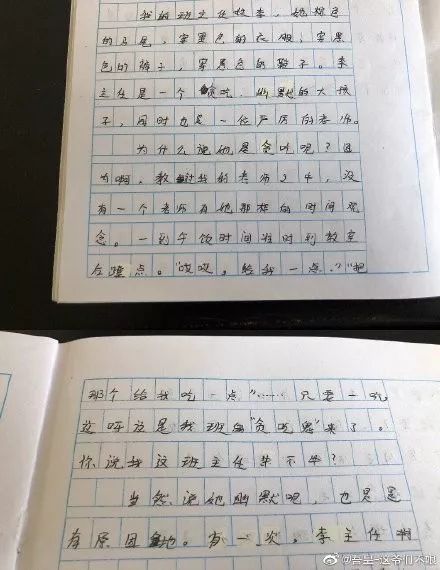 我的班主任姓李，她棕色
的马尾，穿黑色的衣服，穿黑
色的裤子，穿黑色的鞋子。李
主任是一个贪吃，幽默的大孩
子，同时也是一位严厉的老师。
为什么说她是贪吃呢？因
为啊，教过我的老师24，没
有一个老师有她那样的时间观
念。一到午饮时间准时到教室
点。“哎哎。给我一点，”“把
那个给我吃一点”……只要一吃
这呀这是我班的“贪吃鬼”来了。
你说我这班主任贪不贪？
当然说她幽默呢，也是是
有原因地。有一次。李主任啊
@吾皇-这爷们不咱